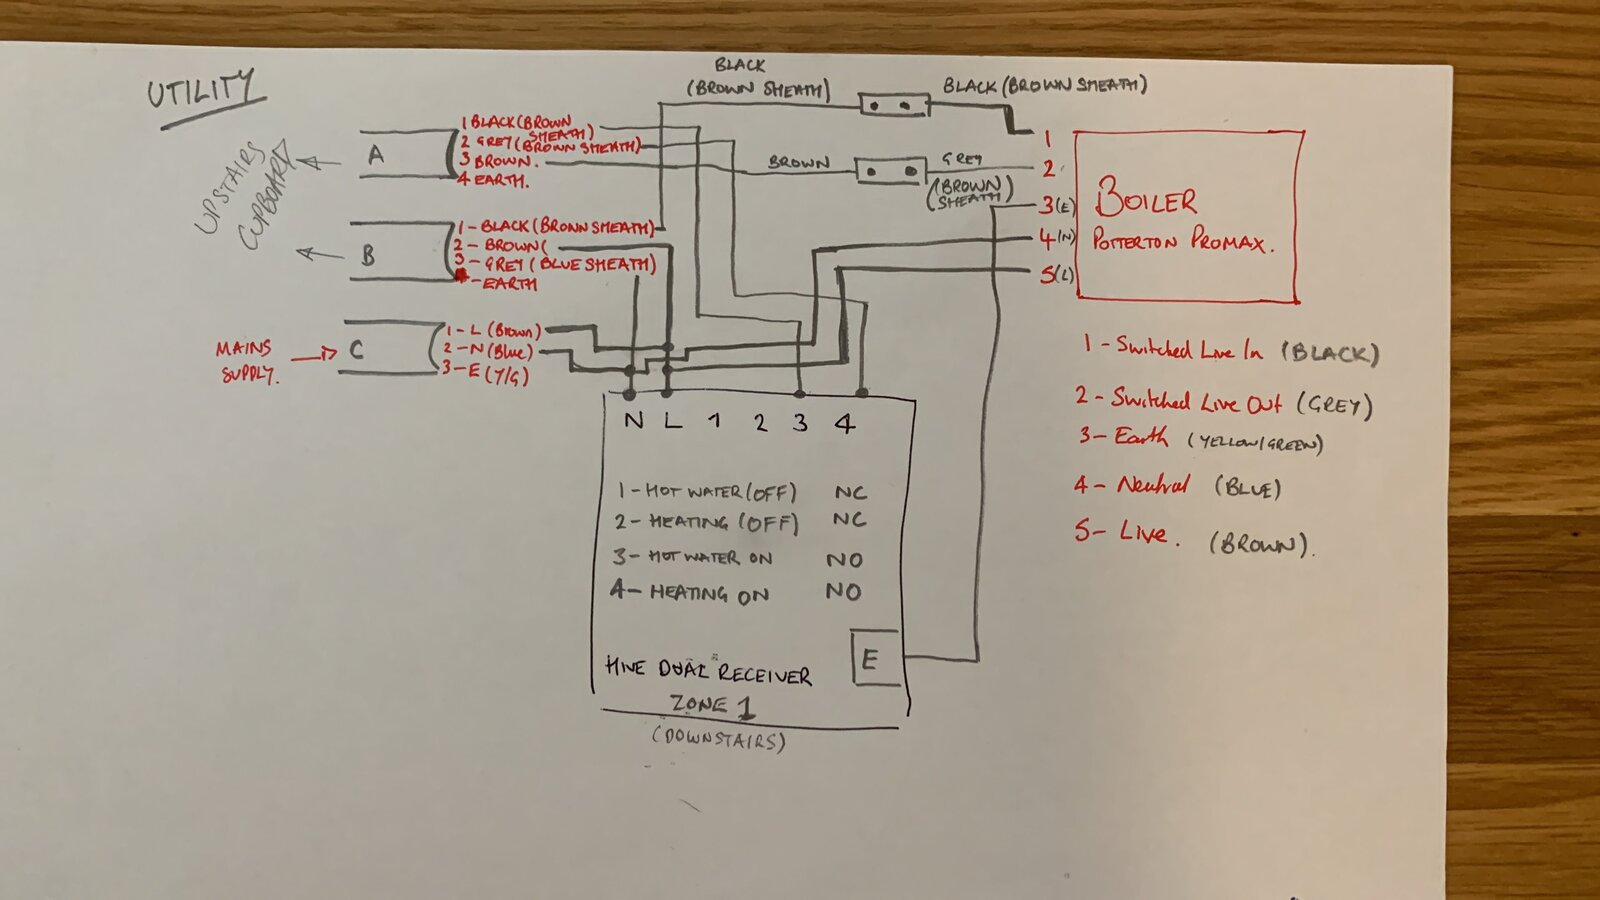 UTILITY
UPSTAIRS
CUPBOARD
A
1 BLACK (BROWN
SHEATH)
2 GREY (BROWN SHEATH)
3 BROWN.
4 EARTH.
B
1 - BLACK (BROWN SHEATH)
2 - BROWN (
3 - GREY (BLUE SHEATH)
- EARTH
MAINS
SUPPLY.
C
1 - L (Brown)
2 - N (Blue)
3 - E (Y/G)
BLACK
(BROWN SHEATH)
BLACK (BROWN SHEATH)
BROWN
GREY
(BROWN
SHEATH)
1
2
3 (E)
4 (N)
5 (L)
BOILER
POTTERTON PROMAX.
1 - Switched Live In (BLACK)
2 - Switched Live Out (GREY)
3 - Earth (YELLOW/GREEN)
4 - Neutral (BLUE)
5 - Live. (BROWN).
N L 1 2 3 4
1 - HOT WATER (OFF) NC
2 - HEATING (OFF) NC
3 - HOT WATER ON NO
4 - HEATING ON NO
E
HIVE DUAL RECEIVER
ZONE 1
(DOWNSTAIRS)